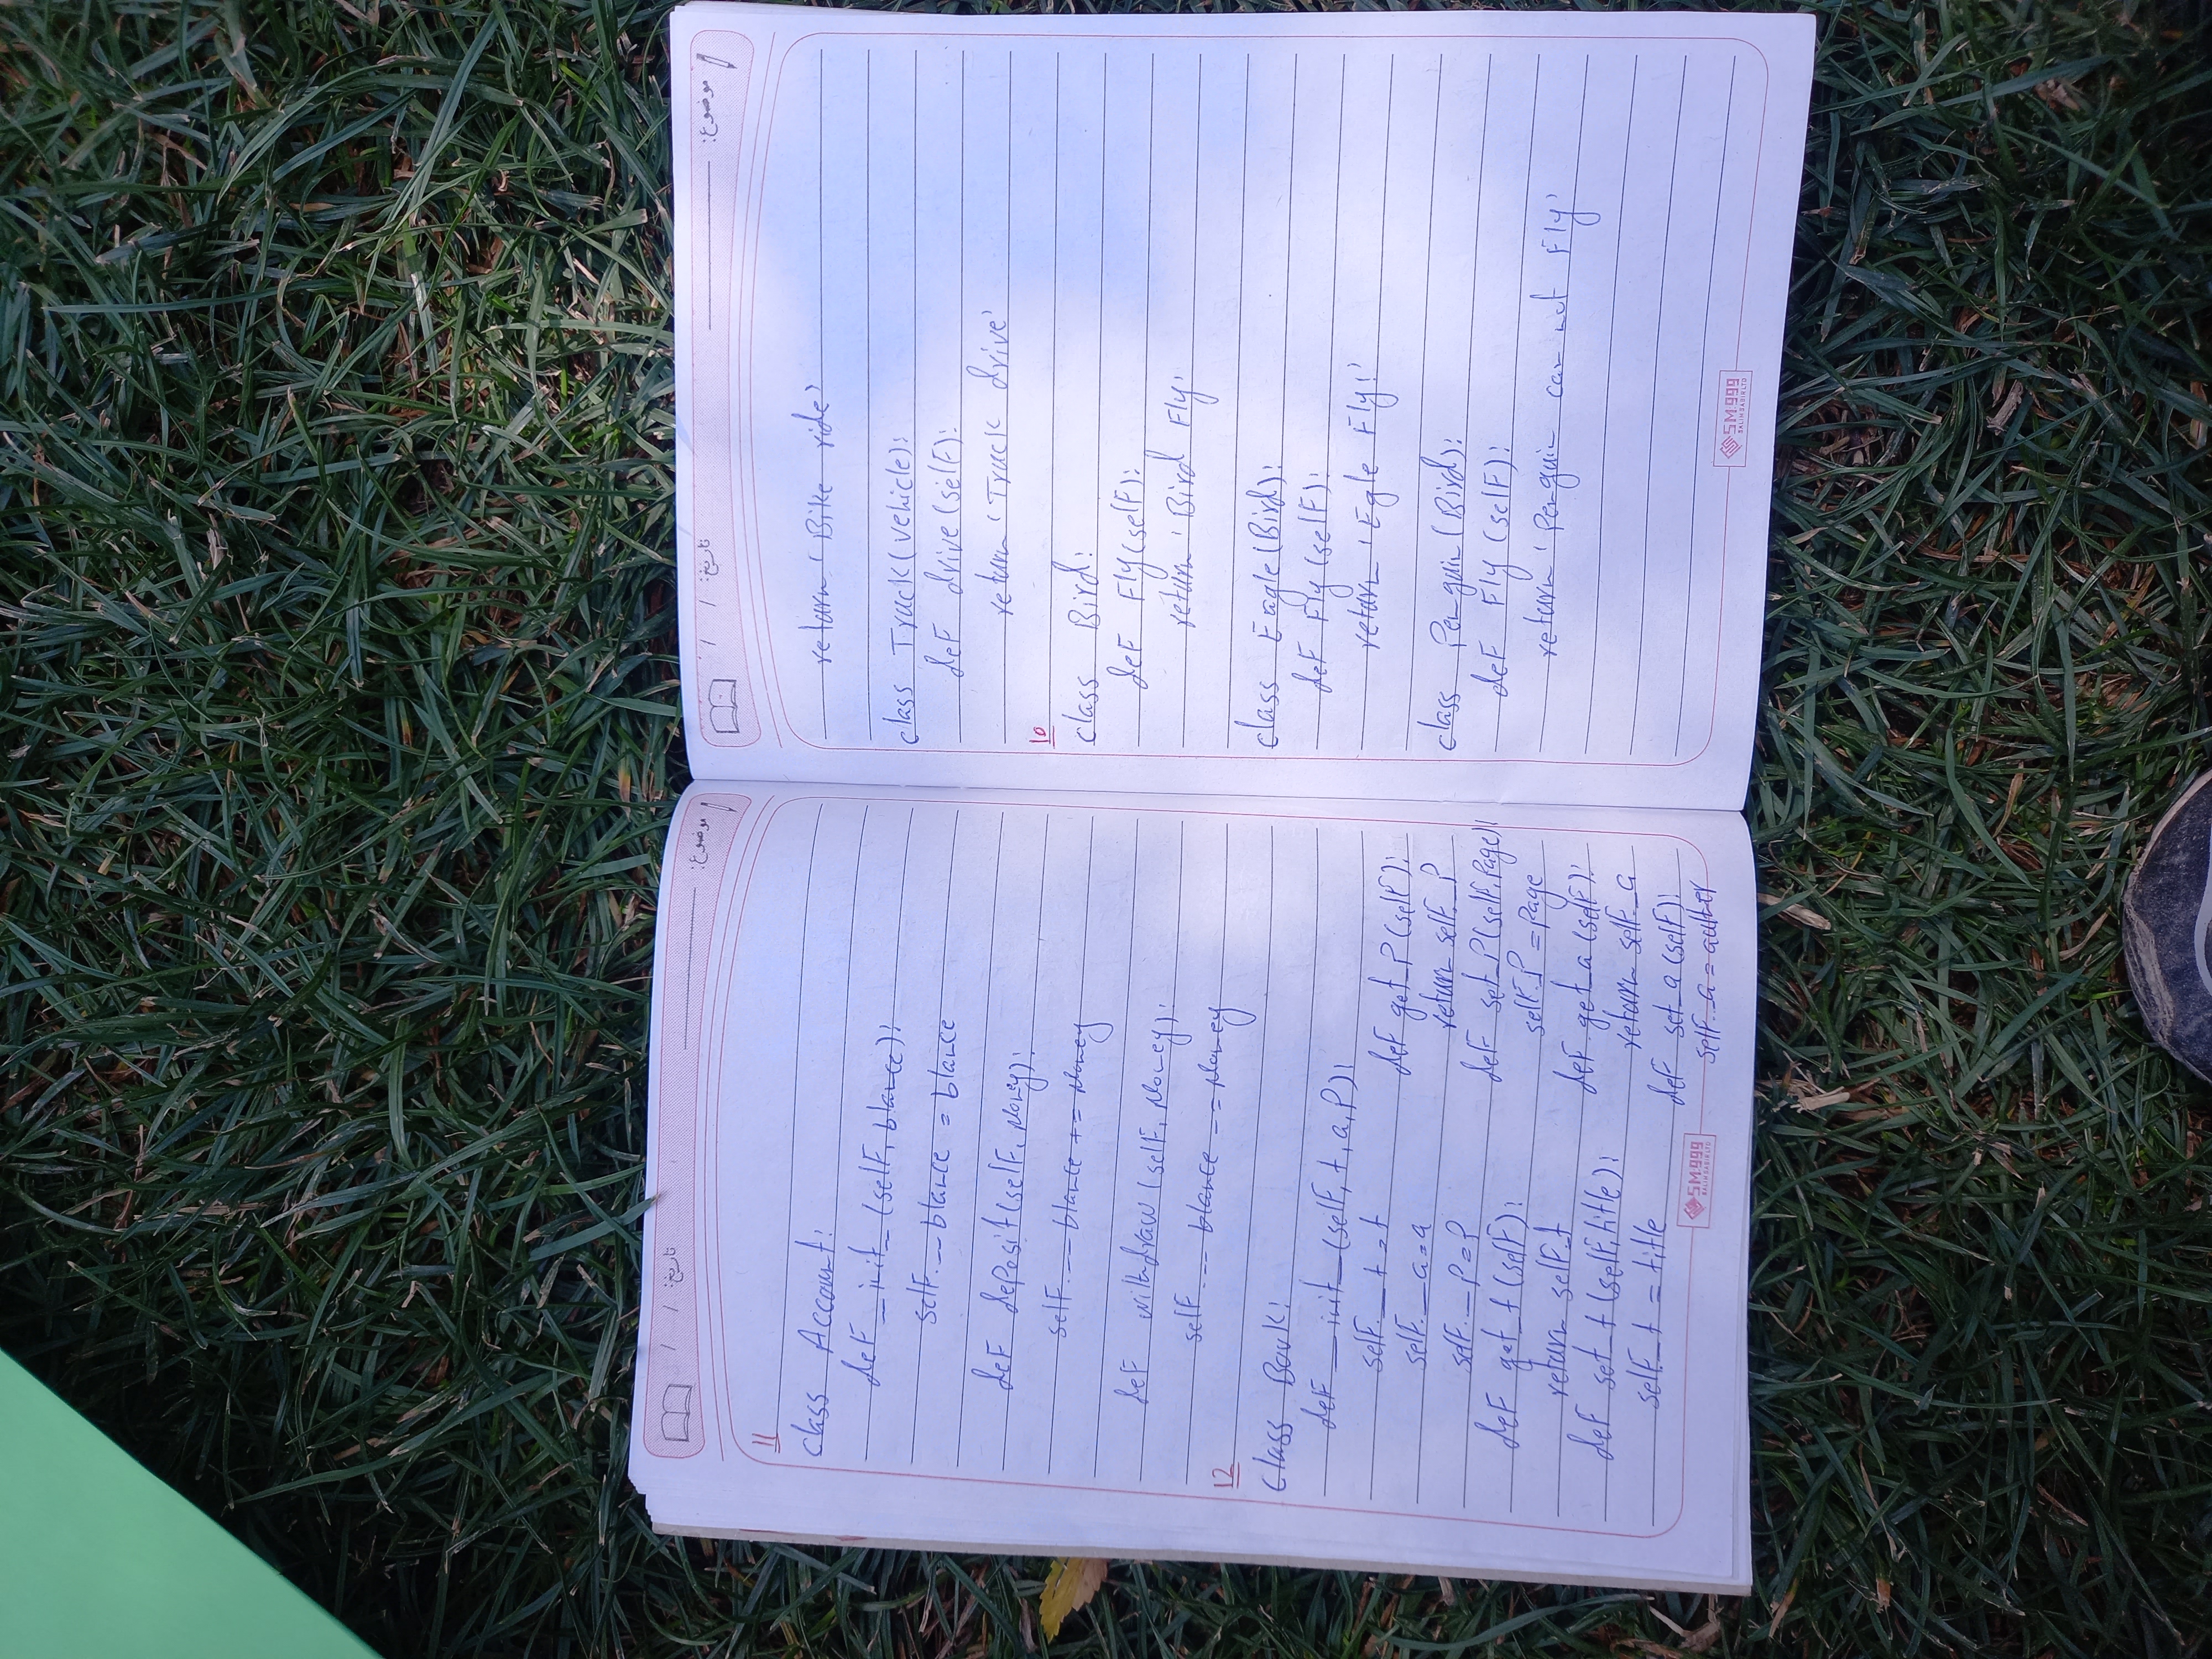 تاریخ: / /
موضوع:
11
class Account:
def __init__(self, blance):
self.__blance = blance
def deposit(self, Money):
self.__blance += Money
def withdraw(self, Money):
self.__blance -= Money
12
class Book:
def __init__(self, t, a, P):
self.__t = t
self.__a = a
self.__P = P
def get_t(self):
return self._t
def set_t(self, title):
self._t = title
def get_P(self):
return self._P
def set_P(self, Page):
self.P = Page
def get_a(self):
return self._a
def set_a(self):
self._a = auther
SM.999
SALIM SADIR LTD
تاریخ: / /
موضوع:
return 'Bike ride'
class Truck(Vehicle):
def drive(self):
return 'Truck drive'
10
class Bird:
def Fly(self):
return 'Bird Fly'
class Eagle(Bird):
def Fly(self):
return 'Egle Fly!'
class Penguin(Bird):
def Fly(self):
return 'Penguin can not Fly'
SM.999
SALIM SADIR LTD